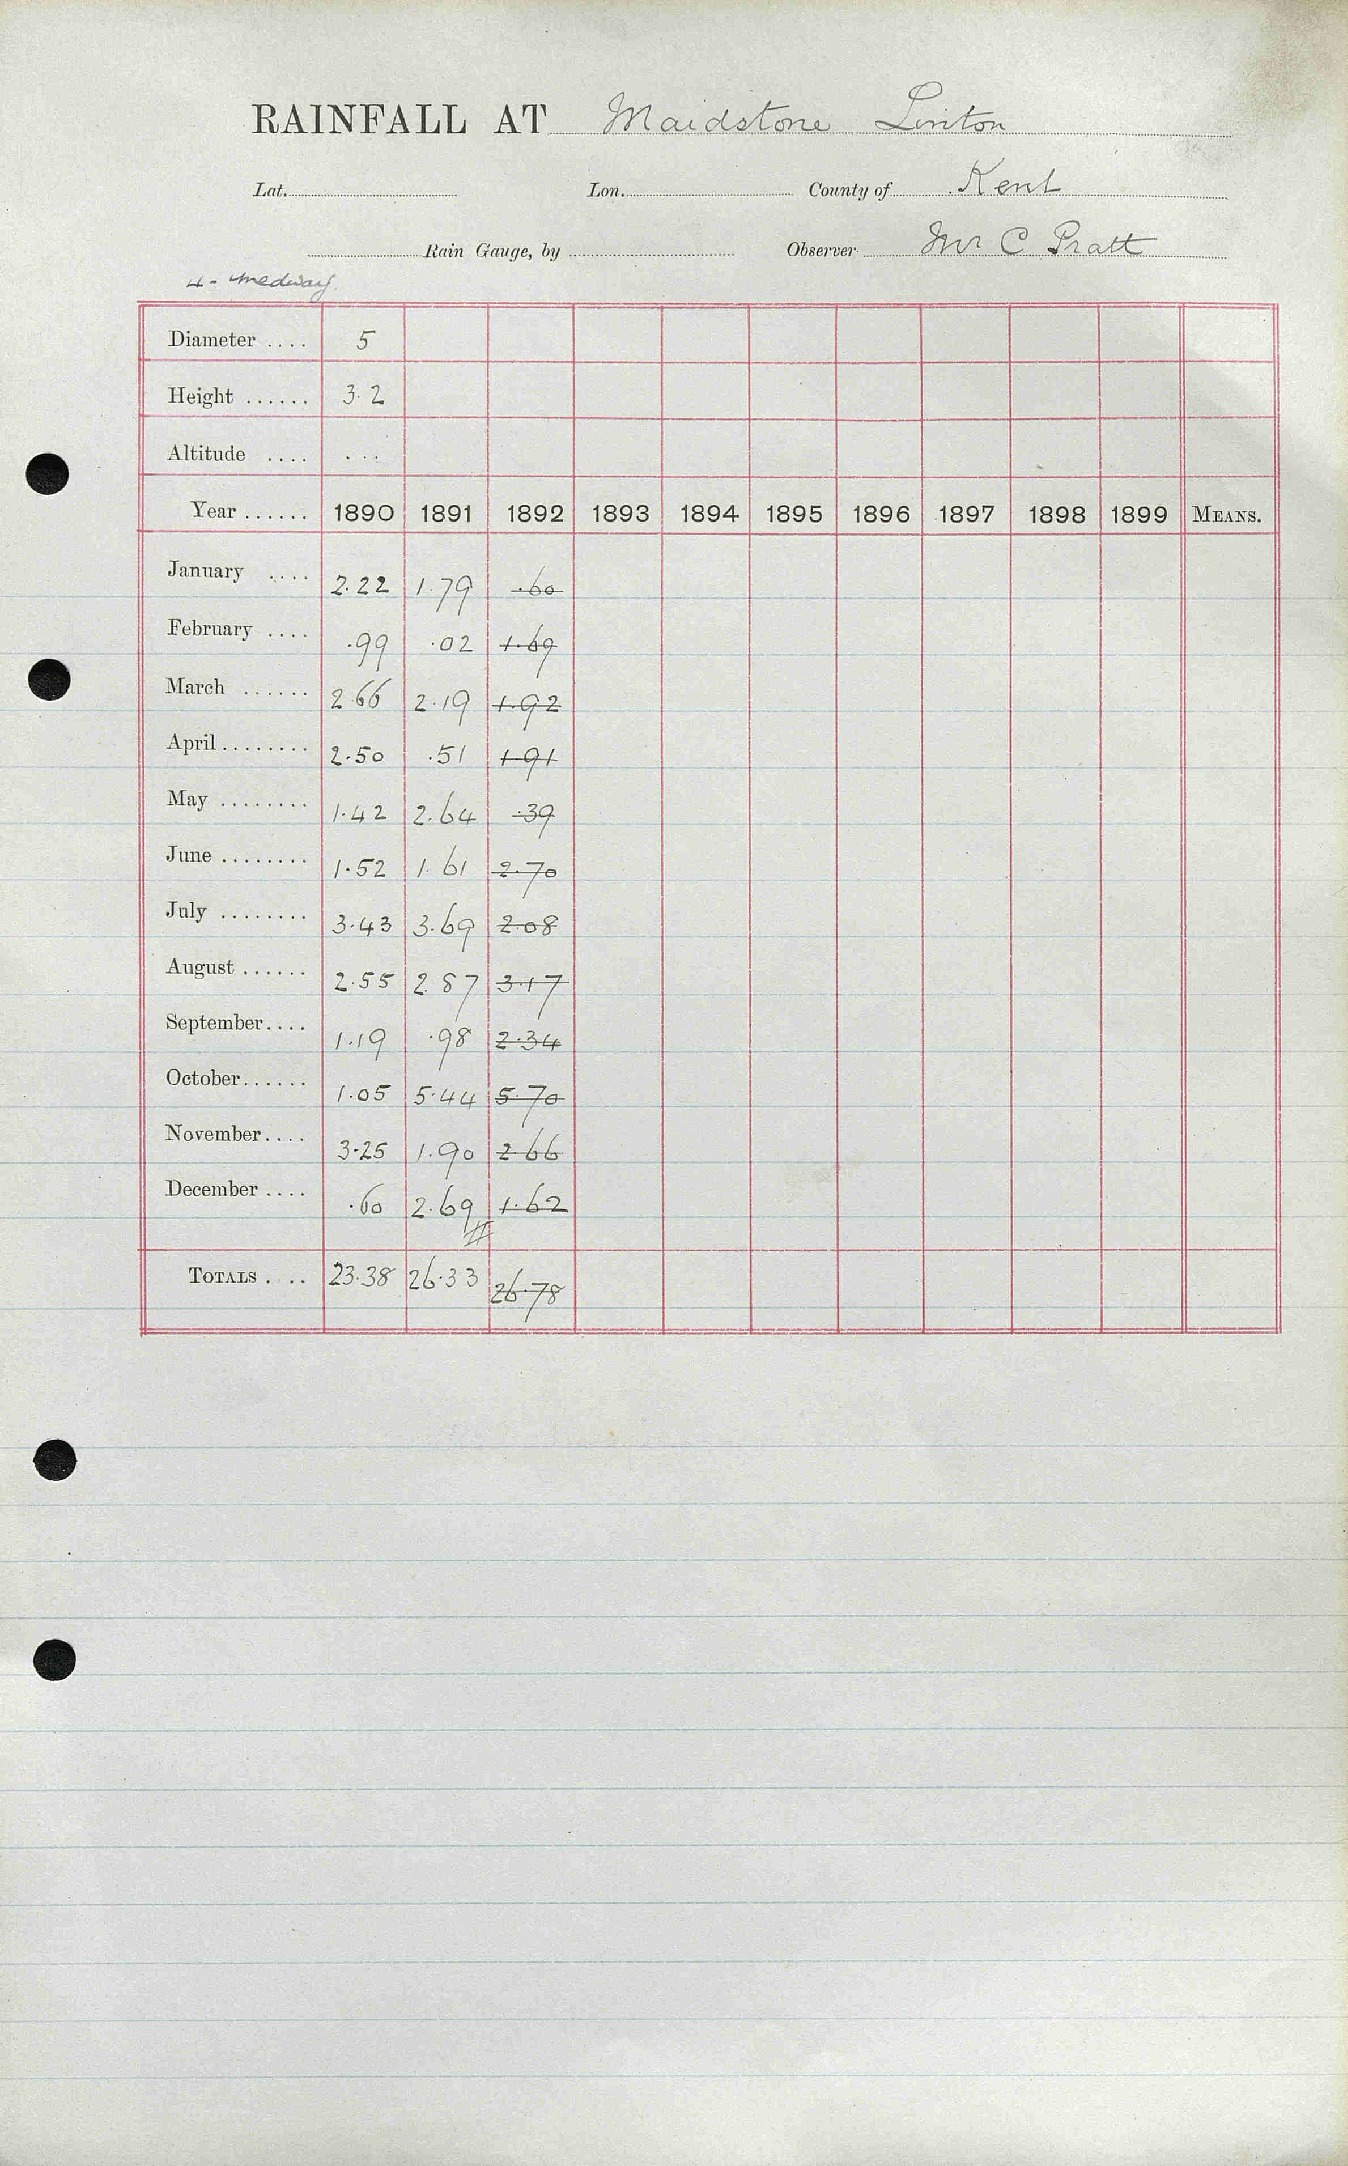 RAINFALL AT Maidstone Linton
Lat. Lon. County of Kent
Rain Gauge, by Observer Mr C Pratt
4 - Medway.
Diameter .... 5
Height ...... 3.2
Altitude .... ...
Year ...... 1890 1891 1892 1893 1894 1895 1896 1897 1898 1899 MEANS.
January .... 2.22 1.79 .60
February .... .99 .02 1.69
March ...... 2.66 2.19 1.92
April ........ 2.50 .51 1.91
May ........ 1.42 2.64 .39
June ........ 1.52 1.61 2.70
July ........ 3.43 3.69 2.08
August ...... 2.55 2.87 3.17
September.... 1.19 .98 2.34
October...... 1.05 5.44 5.70
November.... 3.25 1.90 2.66
December .... .60 2.69 1.62
TOTALS .... 23.38 26.33 26.78